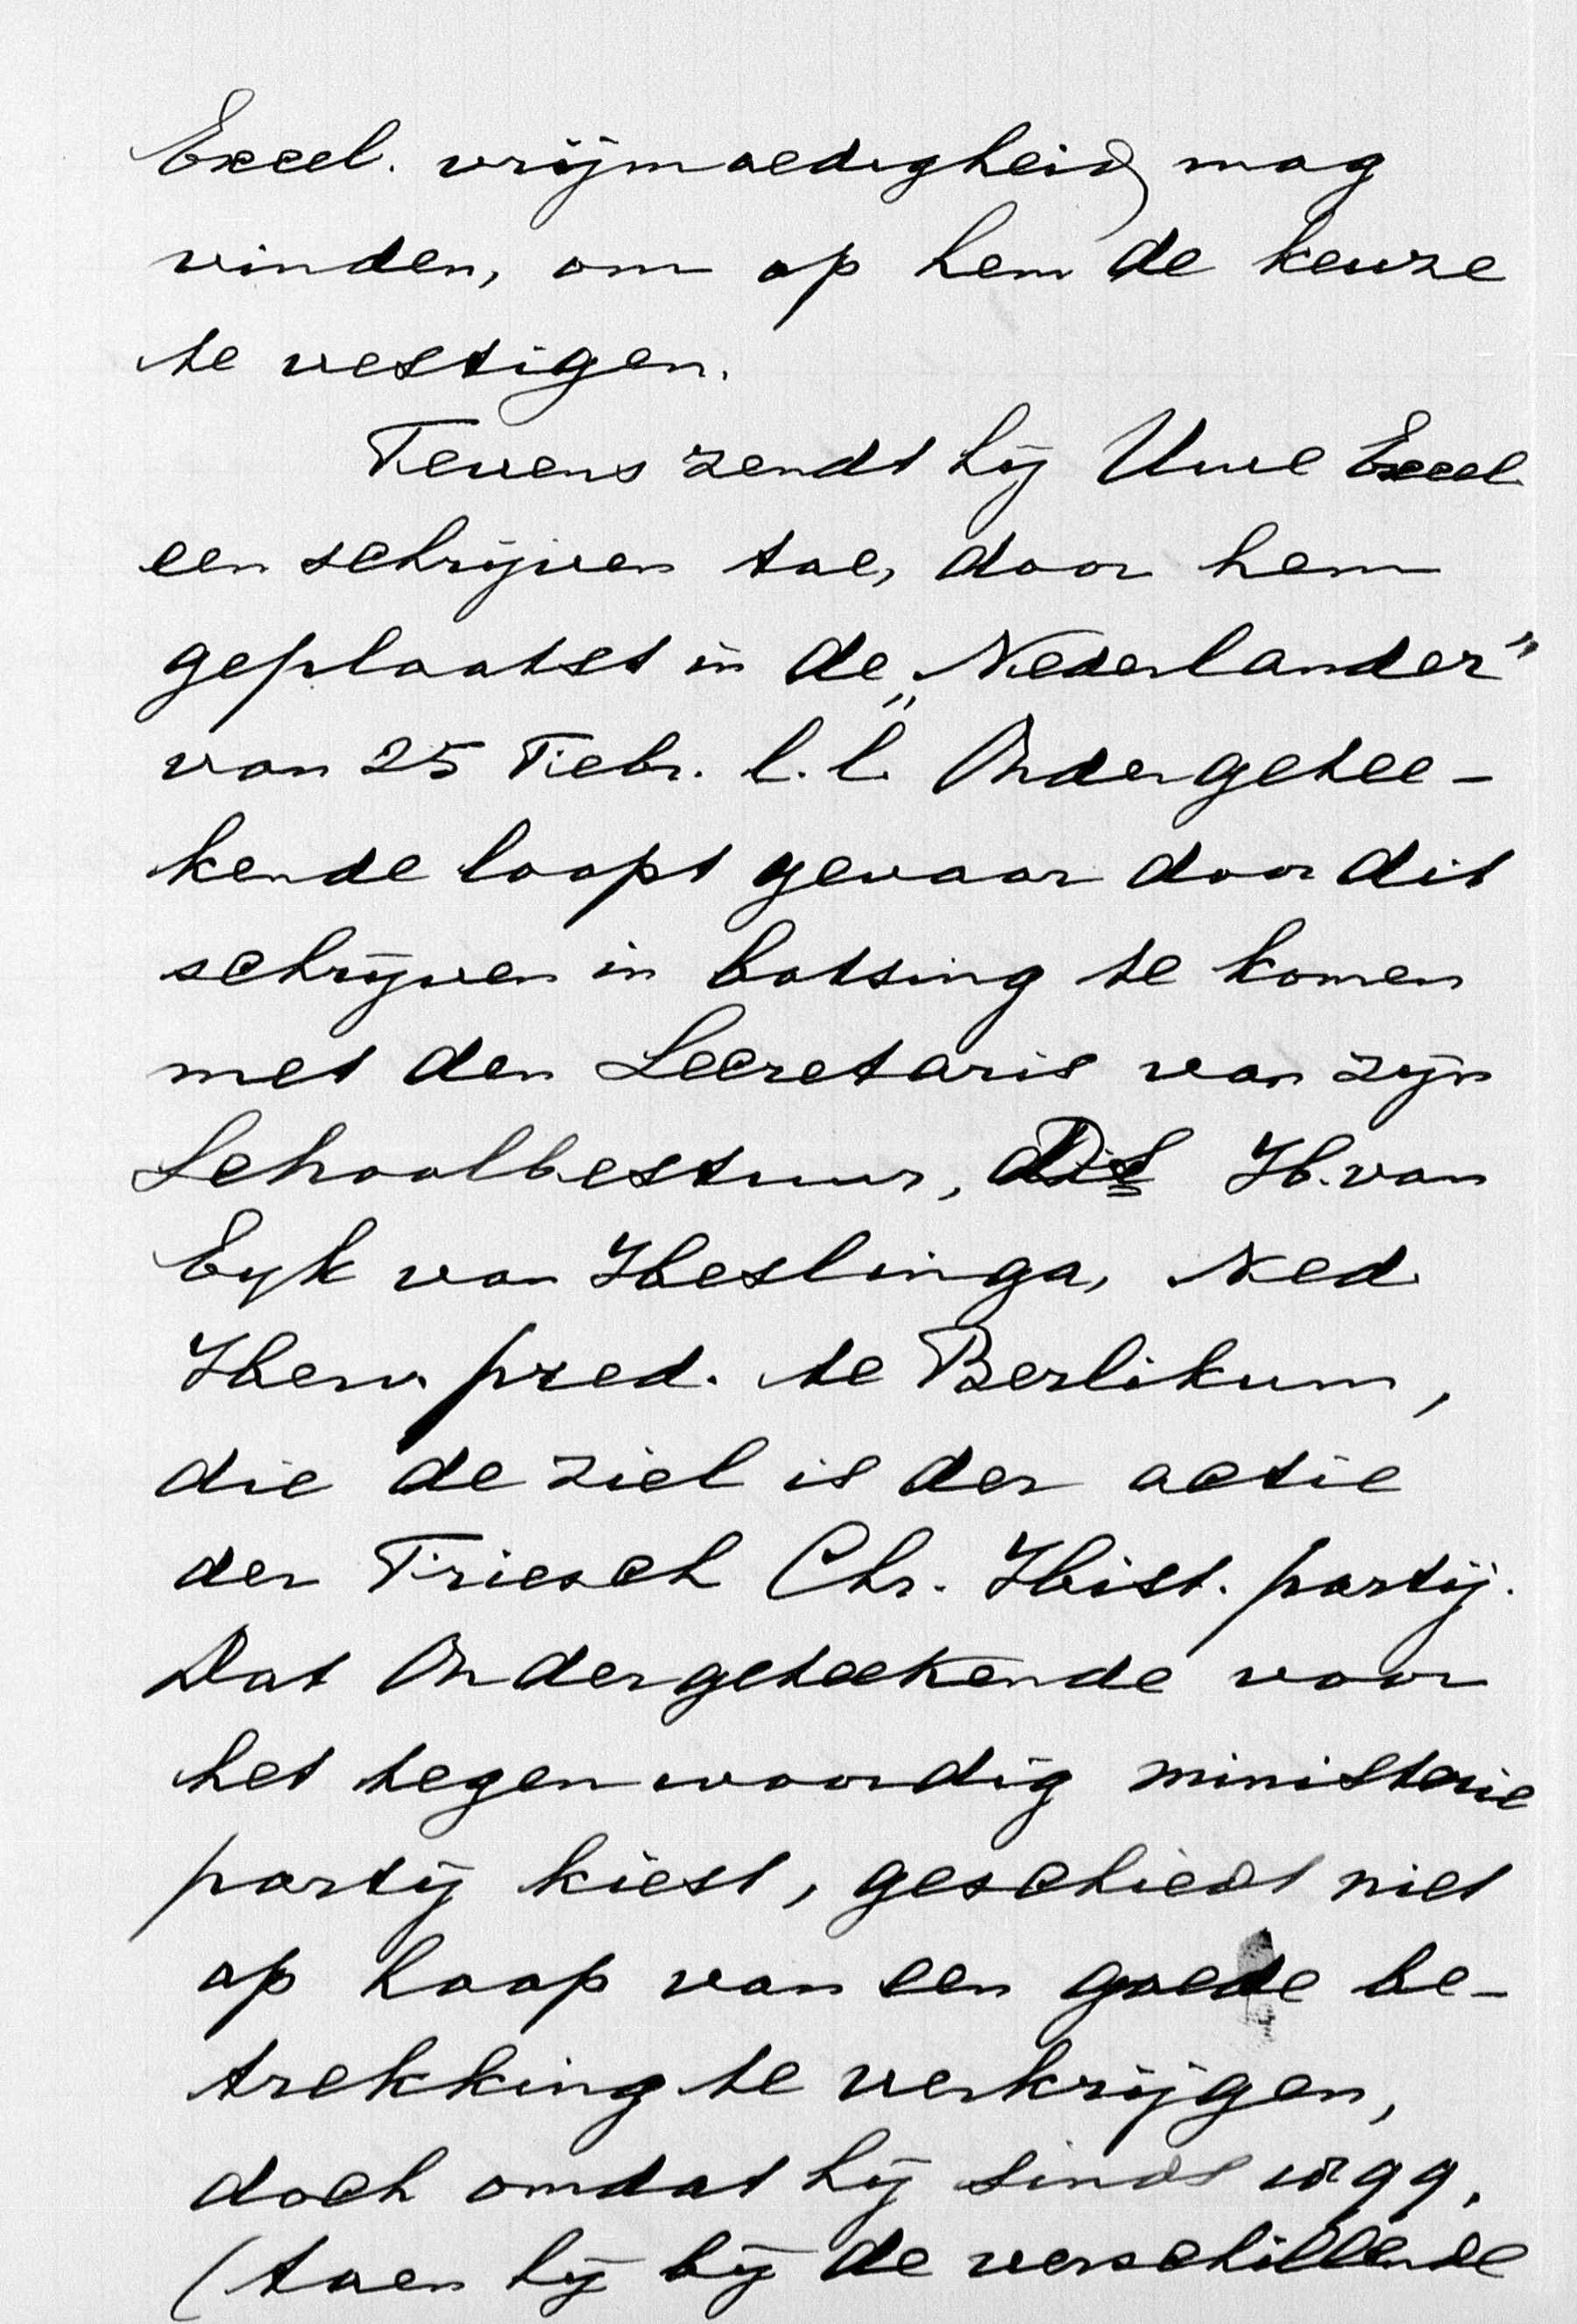 Excel. vrijmoedigheid mag
vinden, om op hem de keuze
te vestigen.
Tevens zendt hij Uwe Excel.
een schrijven toe, door hem
geplaatst in de „Nederlander"
van 25 Febr. l.l. Ondergetee-
kende loopt gevaar door dit
schrijven in botsing te komen
met den Secretaris van zijn
Schoolbestuur, Ds H. van
Eyk van Heslinga, Ned.
Herv. pred. te Berlikum,
die de ziel is der actie
der Friesch Chr. Hist. partij.
Dat Ondergeteekende voor
het tegenwoordig ministerie
partij kiest, geschiedt niet
op hoop van een goede be-
trekking te verkrijgen,
doch omdat hij sinds
(toen hij bij de verschillende